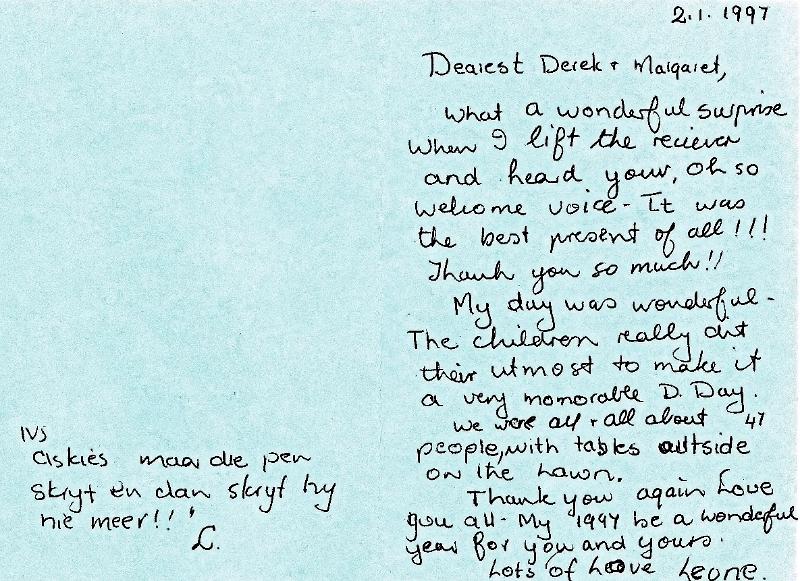 2.1.1997
Dearest Derek + Margaret,
What a wonderful surprise
when I lift the reciever
and heard your, oh so
welcome voice - It was
the best present of all!!!
Thank you so much!!
My day was wonderful -
The children really did
their utmost to make it
a very momorable D. Day.
We were all + all about 47
people, with tables outside
on the Lawn.
Thank you again Love
you all - My 1997 be a wonderful
year for you and yours.
Lots of Love Leone.
NS
Askies maar die pen
skryf en dan skryf hy
nie meer!!
L.